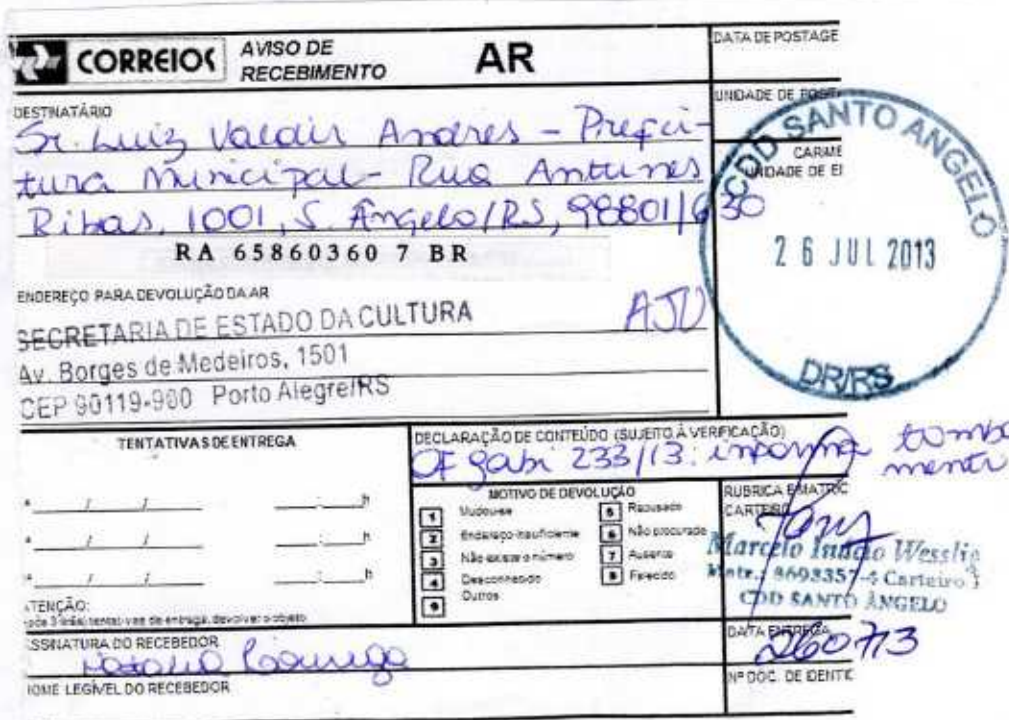 CORREIOS
AVISO DE
RECEBIMENTO
AR
DATA DE POSTAGE
DESTINATÁRIO
Sr. Luiz Valdir Andres - Prefei-
tura Municipal - Rua Antunes
Ribas, 1001, S. Ângelo/RS, 98801/630
RA 65860360 7 BR
UNIDADE DE POST
CARIM
UNIDADE DE E
CDD SANTO ANGELO
26 JUL 2013
DR/RS
ENDEREÇO PARA DEVOLUÇÃO DA AR
SECRETARIA DE ESTADO DA CULTURA
AJU
Av. Borges de Medeiros, 1501
CEP 90119-900 Porto Alegre/RS
TENTATIVAS DE ENTREGA
ª / / : h
ª / / : h
ª / / : h
ATENÇÃO:
após 3 (três) tentativas de entrega, devolver o objeto
DECLARAÇÃO DE CONTEÚDO (SUJEITO À VERIFICAÇÃO)
OF gabi 233/13: informa tomba
mento
MOTIVO DE DEVOLUÇÃO
1 Mudou-se
2 Endereço insuficiente
3 Não existe o número
4 Desconhecido
9 Outros
5 Recusado
6 Não procurado
7 Ausente
8 Falecido
RUBRICA E MATRIC
CARTEIRO
Marcelo Inácio Wesslin
Matr.: 8698357-4 Carteiro I
CDD SANTO ÂNGELO
ASSINATURA DO RECEBEDOR
DATA ENTREGA
260713
NOME LEGÍVEL DO RECEBEDOR
Nº DOC. DE IDENTIC